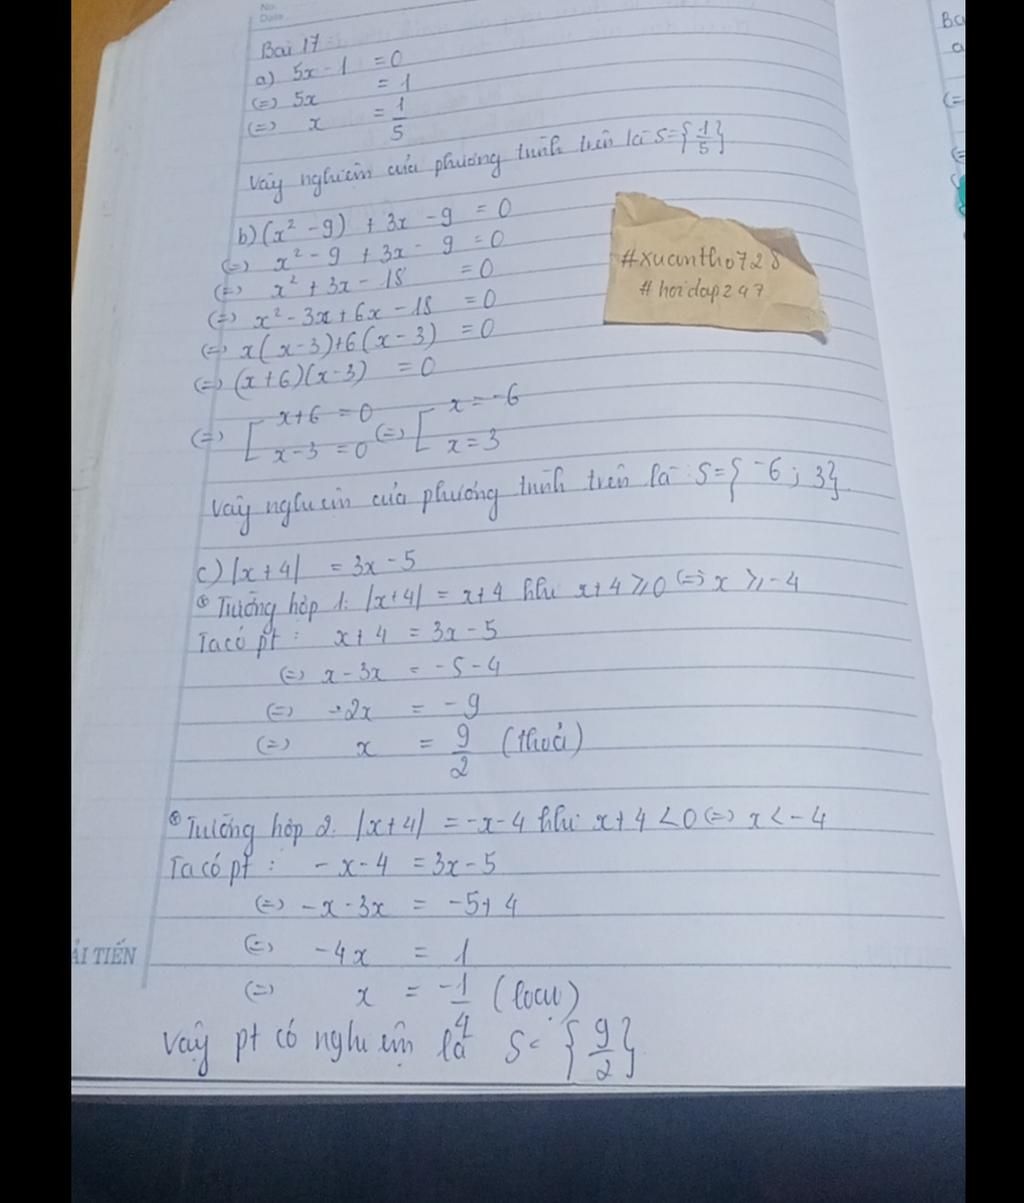 No.
Date
Bài 17:
a) 5x - 1 = 0
(=) 5x = 1
(=) x = 1/5
Vậy nghiệm của phương trình trên là S = {1/5}
b) (x² - 9) + 3x - 9 = 0
(=) x² - 9 + 3x - 9 = 0
(=) x² + 3x - 18 = 0
(=) x² - 3x + 6x - 18 = 0
(=) x(x-3)+6(x-3) = 0
(=) (x+6)(x-3) = 0
(=) [ x+6 = 0 (=) [ x = -6
x-3 = 0 x = 3
Vậy nghiệm của phương trình trên là : S = { -6 ; 3}
#xuantho728
#hoidap247
c) |x+4| = 3x - 5
Trường hợp 1: |x+4| = x+4 khi x+4 ⩾ 0 (=) x ⩾ -4
Ta có pt : x+4 = 3x - 5
(=) x - 3x = -5 - 4
(=) -2x = -9
(=) x = 9/2 (thoả)
Trường hợp 2: |x+4| = -x-4 khi x+4 < 0 (=) x < -4
Ta có pt : -x-4 = 3x-5
(=) -x-3x = -5+4
(=) -4x = 1
(=) x = -1/4 (loại)
Vậy pt có nghiệm là S = {9/2}
ẢI TIẾN
Ba
a
(=
(=